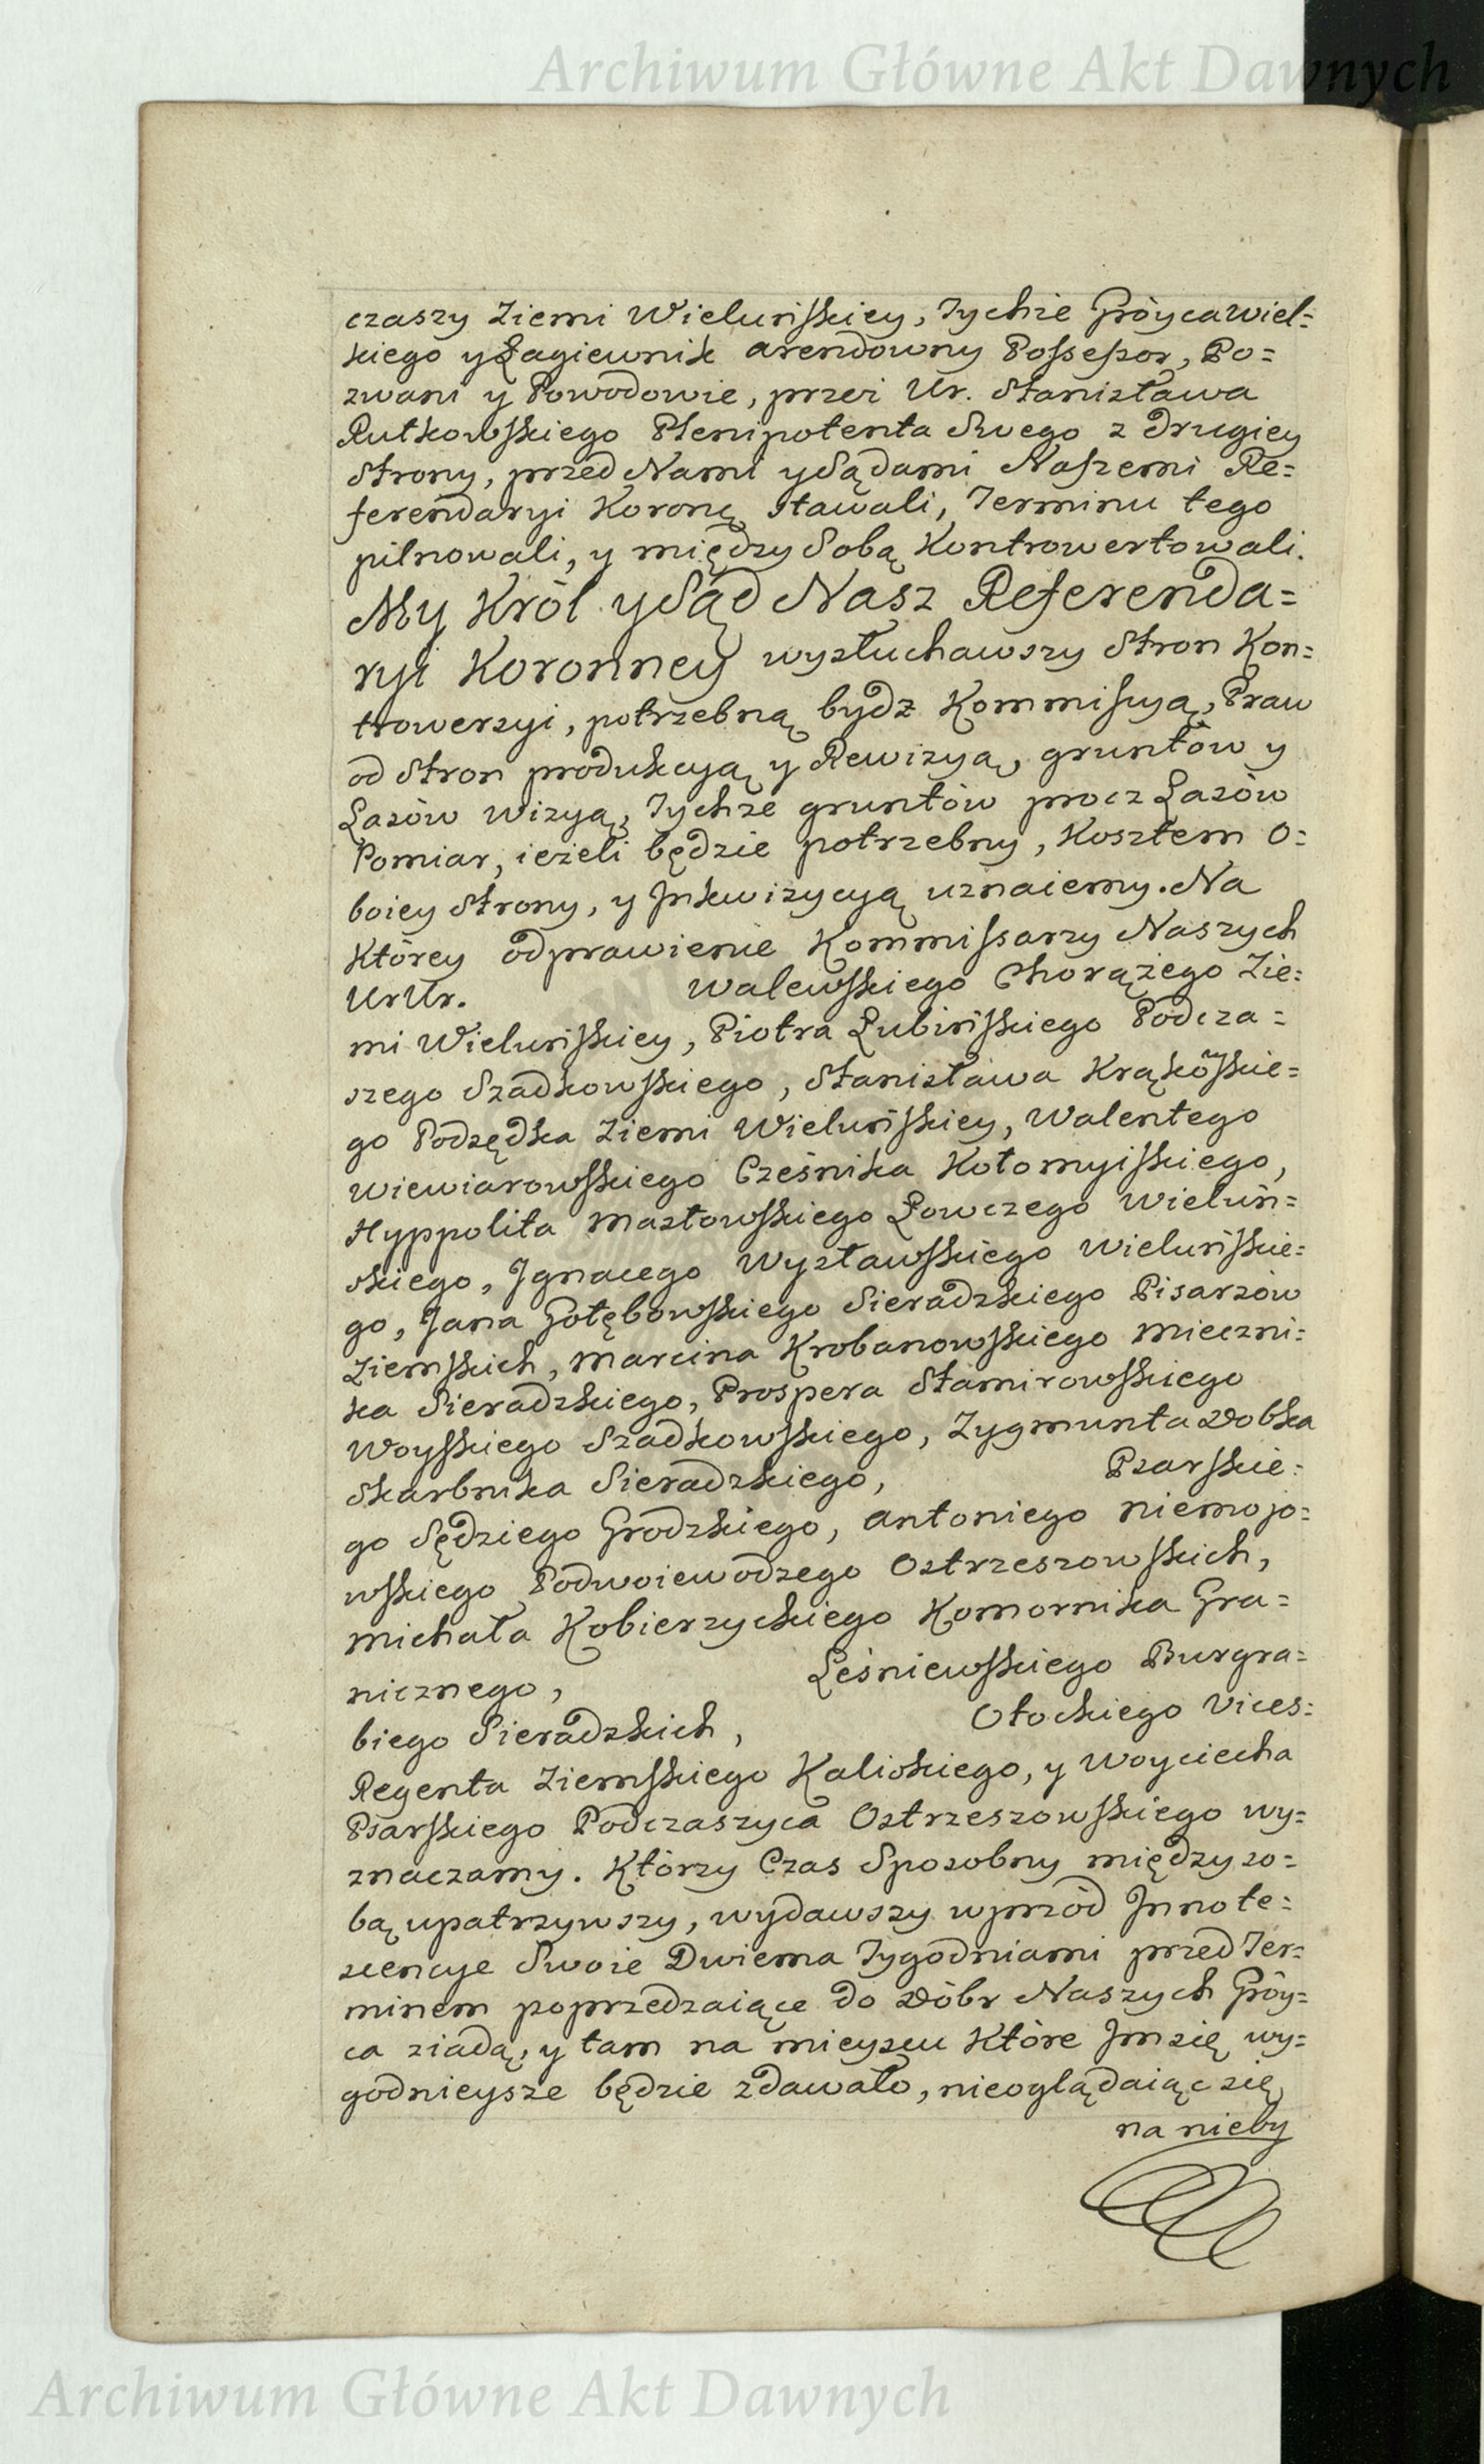 Archiwum Główne Akt Dawnych
czaszy Ziemi Wieluńskiey, Tychże Gróyca Wiel=
kiego y Łagiewnik arendowny Possessor, Po=
zwani y Powodowie, przez Ur. Stanisława
Rutkowskiego Plenipotenta Swego z drugiey
Strony, przed Nami y Sądami Naszemi Re=
ferendaryi Koronę stawali, Terminu tego
pilnowali, y między Sobą Kontrowertowali.
My Król y Sąd Nasz Referenda=
ryi Koronney wysłuchawszy Stron Kon=
trowersyi, potrzebną bydz Kommissyą, Praw
od Stron produkcyą y Rewizyą, gruntów y
Lasów wizyą, Tychże gruntów procz Lasów
Pomiar, ieżeli będzie potrzebny, Kosztem O=
boiey Strony, y Inkwizycyą uznaiemy. Na
Którey odprawienie Kommissarzy Naszych
UrUr. Walewskiego Chorążego Zie=
mi Wieluńskiey, Piotra Łubińskiego Podcza=
szego Szadkowskiego, Stanisława Krąkowskie=
go Podsędka Ziemi Wieluńskiey, Walentego
Wiewiarowskiego Cześnika Kołomyiskiego,
Hyppolita Masłowskiego Łowczego Wieluń=
skiego, Ignacego Wysławskiego Wieluńskie=
go, Jana Gołębowskiego Sieradzkiego Pisarzów
Ziemskich, Marcina Krobanowskiego Mieczni=
ka Sieradzkiego, Prospera Stamirowskiego
Woyskiego Szadkowskiego, Zygmunta Dobka
Skarbnika Sieradzkiego, Psarskie=
go Sędziego Grodzkiego, Antoniego Niemojo=
wskiego Podwoiewodzego Ostrzeszowskich,
Michała Kobierzyckiego Komornika Gra=
nicznego, Leśniewskiego Burgra=
biego Sieradzkich, Otockiego Vices=
Regenta Ziemskiego Kaliskiego, y Woyciecha
Psarskiego Podczaszyca Ostrzeszowskiego wy=
znaczamy. Którzy Czas Sposobny między so=
bą upatrzywszy, wydawszy wprzód Innote=
scencye Swoie Dwiema Tygodniami przed Ter=
minem poprzedzaiące do Dóbr Naszych Gróy=
ca ziadą, y tam na mieyscu Które Im się wy=
godnieysze będzie zdawało, nieoglądaiąc się
na nieby
Archiwum Główne Akt Dawnych